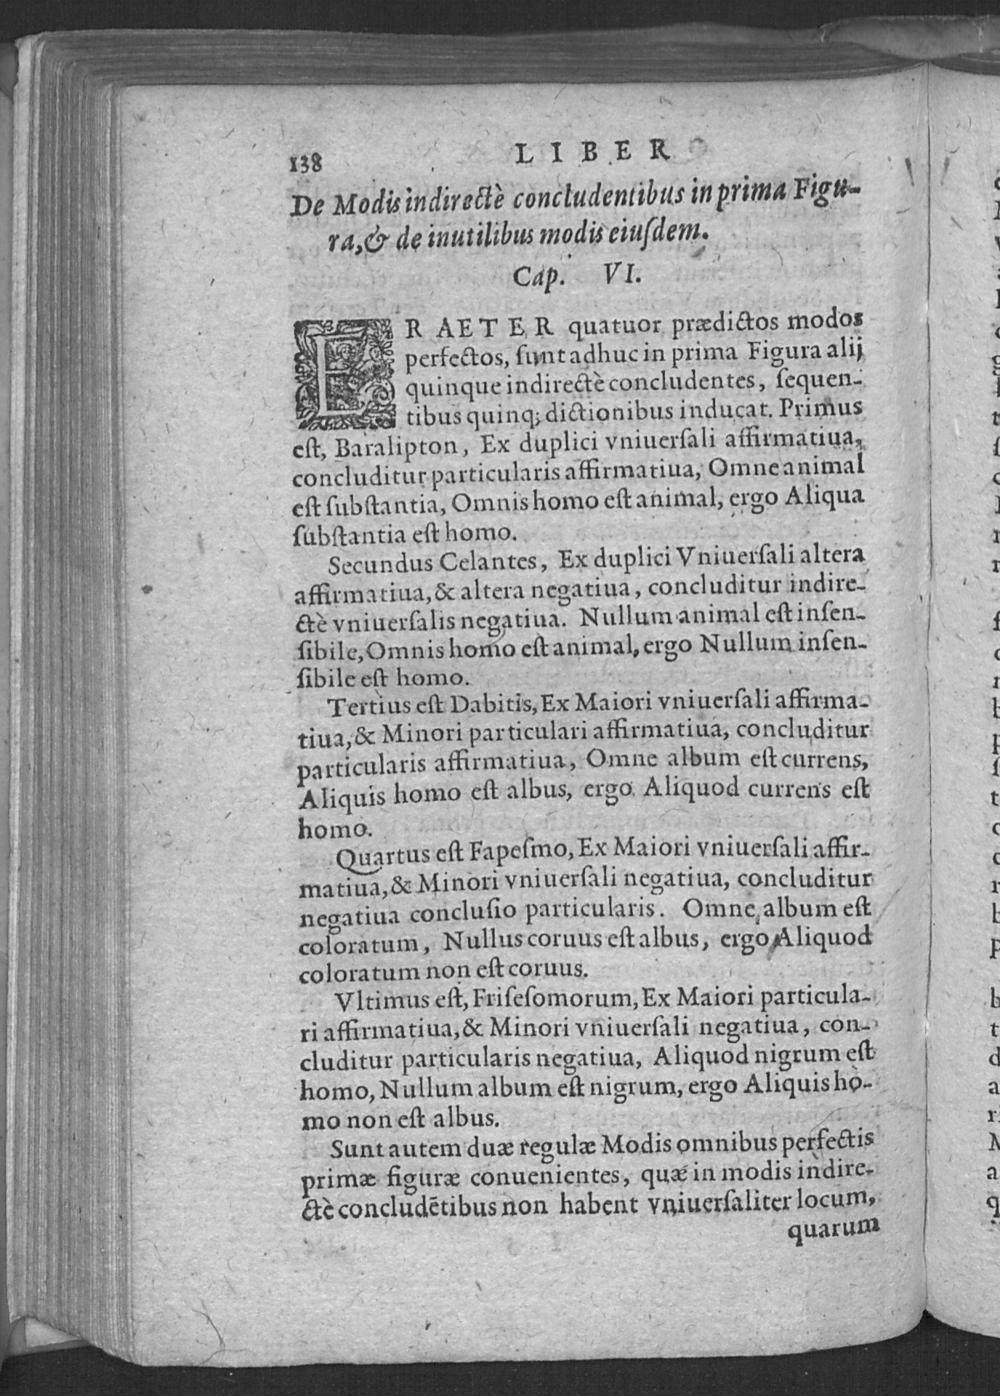 138 LIBER
De Modis indirectè concludentibus in prima Figu-
ra, & de inutilibus modis eiuſdem.
Cap. VI.
PRAETER quatuor prædictos modos
perfectos, ſunt adhuc in prima Figura alij
quinque indirectè concludentes, ſequen-
tibus quinq; dictionibus inducat. Primus
eſt, Baralipton, Ex duplici vniuerſali affirmatiua,
concluditur particularis affirmatiua, Omne animal
eſt ſubſtantia, Omnis homo eſt animal, ergo Aliqua
ſubſtantia eſt homo.
Secundus Celantes, Ex duplici Vniuerſali altera
affirmatiua, & altera negatiua, concluditur indire-
ctè vniuerſalis negatiua. Nullum animal eſt inſen-
ſibile, Omnis homo eſt animal, ergo Nullum inſen-
ſibile eſt homo.
Tertius eſt Dabitis, Ex Maiori vniuerſali affirma-
tiua, & Minori particulari affirmatiua, concluditur
particularis affirmatiua, Omne album eſt currens,
Aliquis homo eſt albus, ergo Aliquod currens eſt
homo.
Quartus eſt Fapeſmo, Ex Maiori vniuerſali affir-
matiua, & Minori vniuerſali negatiua, concluditur
negatiua concluſio particularis. Omne album eſt
coloratum, Nullus coruus eſt albus, ergo Aliquod
coloratum non eſt coruus.
Vltimus eſt, Friſeſomorum, Ex Maiori particula-
ri affirmatiua, & Minori vniuerſali negatiua, con-
cluditur particularis negatiua, Aliquod nigrum eſt
homo, Nullum album eſt nigrum, ergo Aliquis ho-
mo non eſt albus.
Sunt autem duæ regulæ Modis omnibus perfectis
primæ figuræ conuenientes, quæ in modis indire-
ctè concludẽtibus non habent vniuerſaliter locum,
quarum